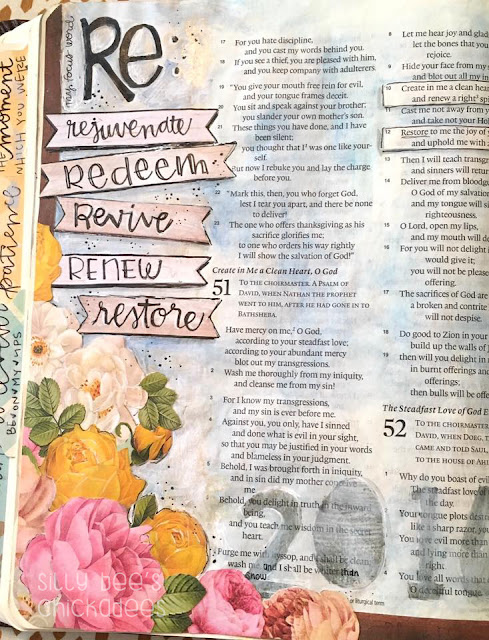 moment
WHICH YOU WERE
patience
my focus word
Re:
rejuvenate
Redeem
Revive
RENEW
restore
17 For you hate discipline,
and you cast my words behind you.
18 If you see a thief, you are pleased with him,
and you keep company with adulterers.
19 "You give your mouth free rein for evil,
and your tongue frames deceit.
20 You sit and speak against your brother;
you slander your own mother's son.
21 These things you have done, and I have
been silent;
you thought that I was one like your-
self.
But now I rebuke you and lay the charge
before you.
22 "Mark this, then, you who forget God,
lest I tear you apart, and there be none
to deliver!
23 The one who offers thanksgiving as his
sacrifice glorifies me;
to one who orders his way rightly
I will show the salvation of God!"
Create in Me a Clean Heart, O God
51 TO THE CHOIRMASTER. A PSALM OF
DAVID, WHEN NATHAN THE PROPHET
WENT TO HIM, AFTER HE HAD GONE IN TO
BATHSHEBA.
Have mercy on me, O God,
according to your steadfast love;
according to your abundant mercy
blot out my transgressions.
2 Wash me thoroughly from my iniquity,
and cleanse me from my sin!
3 For I know my transgressions,
and my sin is ever before me.
Against you, you only, have I sinned
and done what is evil in your sight,
so that you may be justified in your words
and blameless in your judgment.
Behold, I was brought forth in iniquity,
and in sin did my mother conceive
me.
Behold, you delight in truth in the inward
being,
and you teach me wisdom in the secret
heart.
Purge me with hyssop, and I shall be clean;
wash me, and I shall be whiter than
snow
8 Let me hear joy and glad
let the bones that you
rejoice.
9 Hide your face from my
and blot out all my in
10 Create in me a clean hear
and renew a right spi
11 Cast me not away from y
and take not your Hol
12 Restore to me the joy of y
and uphold me with
13 Then I will teach transg
and sinners will retur
14 Deliver me from bloodgu
O God of my salvatio
and my tongue will si
righteousness.
15 O Lord, open my lips,
and my mouth will de
16 For you will not delight i
would give it;
you will not be please
offering.
17 The sacrifices of God are
a broken and contrite
will not despise.
18 Do good to Zion in your
build up the walls of J
19 then will you delight in r
in burnt offerings and
offerings;
then bulls will be offer
The Steadfast Love of God E
52 TO THE CHOIRMASTER
DAVID, WHEN DOEG, T
CAME AND TOLD SAUL,
TO THE HOUSE OF AHI
Why do you boast of evil
The steadfast love of
the day.
Your tongue plots dest
like a sharp razor, you
You love evil more than
and lying more than
right.
4 You love all words that d
O deceitful tongue.
or liturgical term
201
silly bee's
chickadees